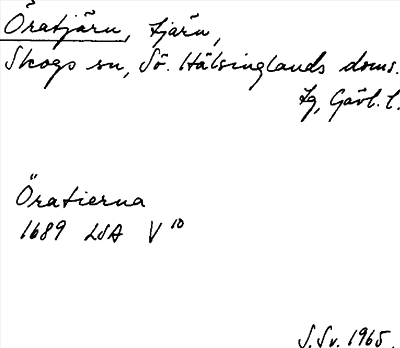 Öratjärn, tjärn,
Skogs sn, Sö. Hälsinglands doms.
tg, Gävl. l.
Öratierna
1689 LSA V 10
S. Sv. 1965.